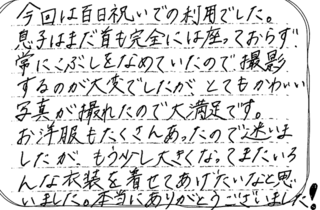 今回は百日祝いでの利用でした。
息子はまだ首も完全には座っておらず
常にこぶしをなめていたので撮影
するのが大変でしたが、とてもかわいい
写真が撮れたので大満足です。
お洋服もたくさんあったので迷いま
したが、もう少し大きくなってまたいろ
んな衣装を着せてあげたいなと思
いました。本当にありがとうございました!